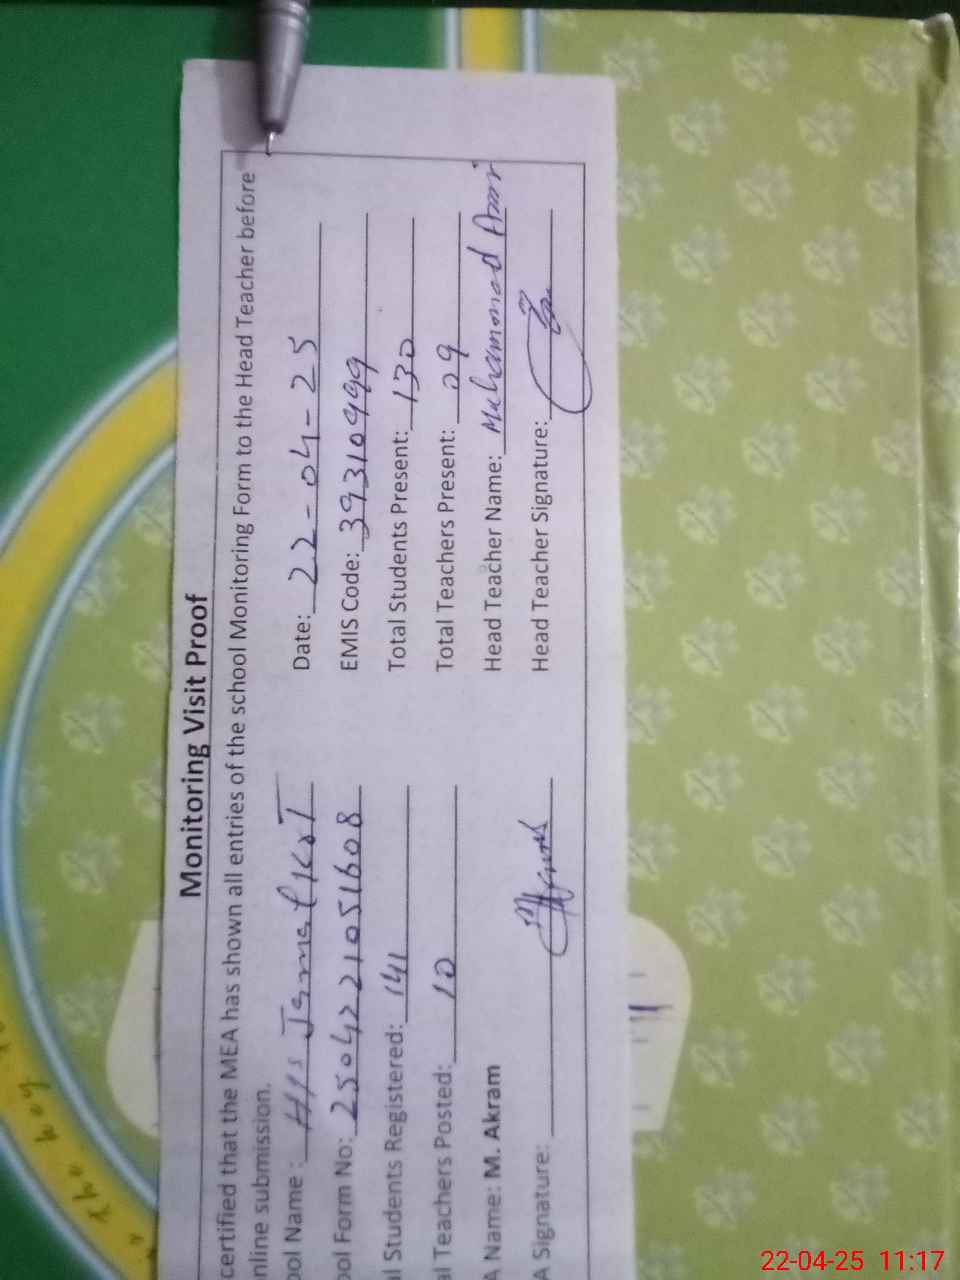 Monitoring Visit Proof
certified that the MEA has shown all entries of the school Monitoring Form to the Head Teacher before
nline submission.
ool Name : Ismail Kot Date: 22-04-25
ool Form No: 2504221051608 EMIS Code: 39310499
l Students Registered: 141 Total Students Present: 130
al Teachers Posted: 10 Total Teachers Present: 09
A Name: M. Akram Head Teacher Name: Muhammad Amir
A Signature: Head Teacher Signature:
the key
22-04-25 11:17